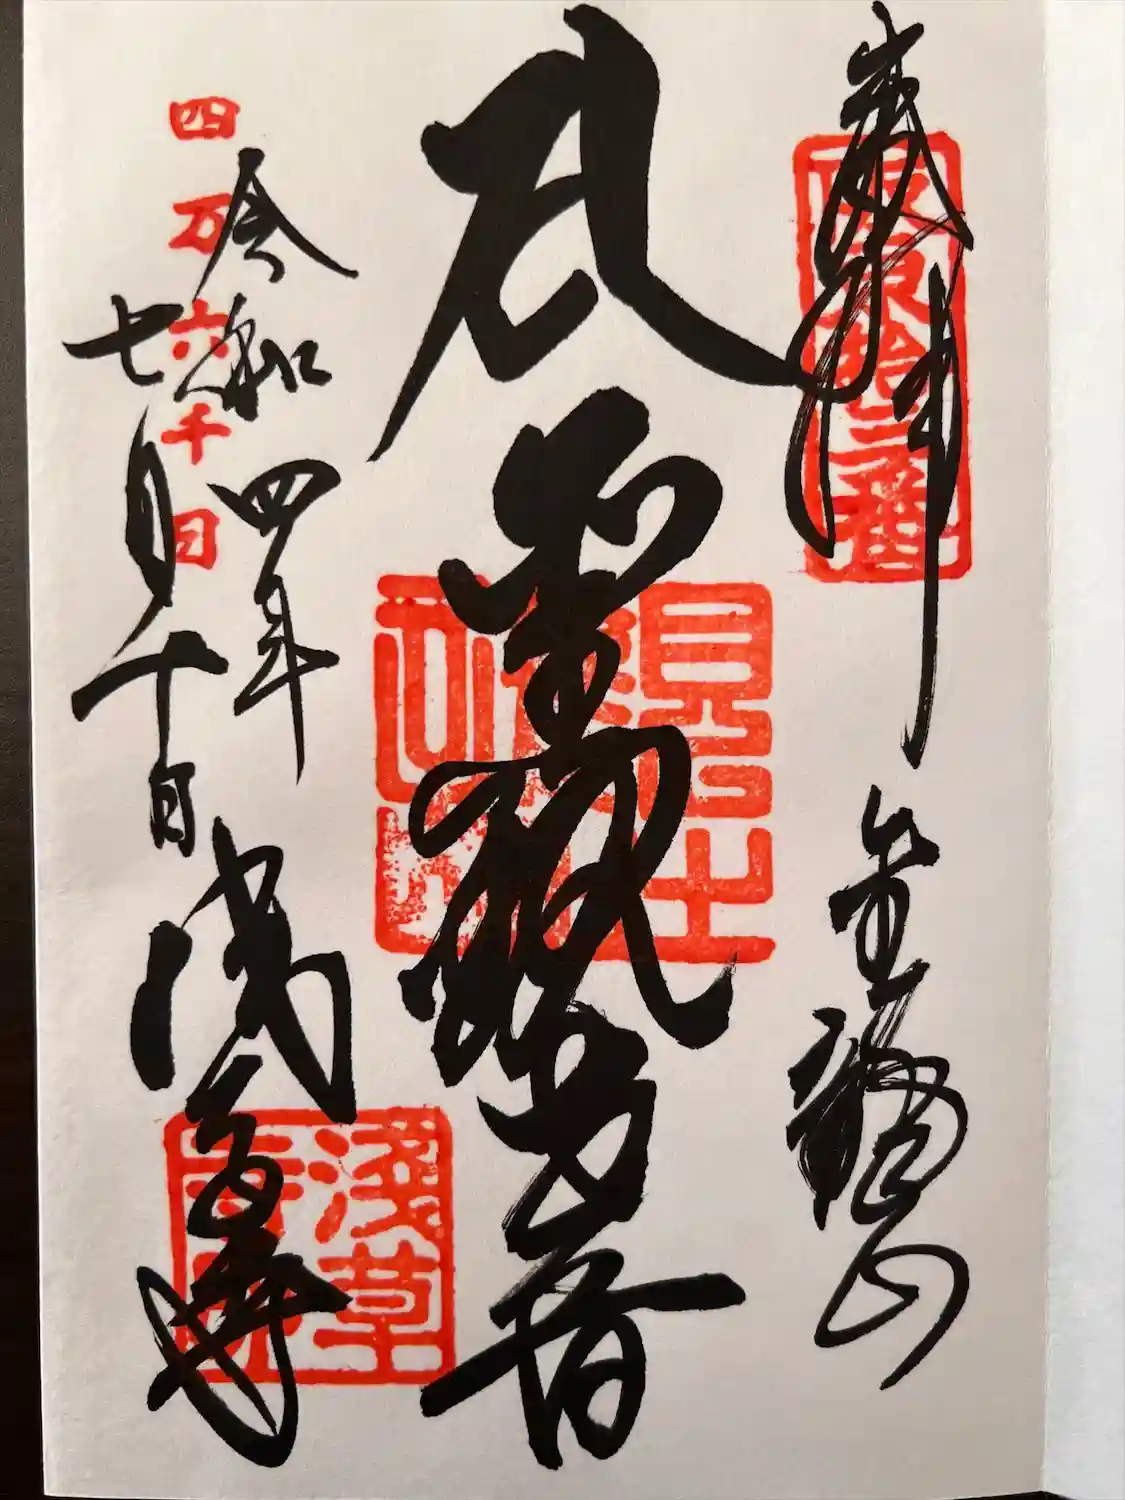 奉拝
坂東拾三番
金龍山
聖観世音
令和四年
七月十日
四万六千日
浅草寺
淺草寺印